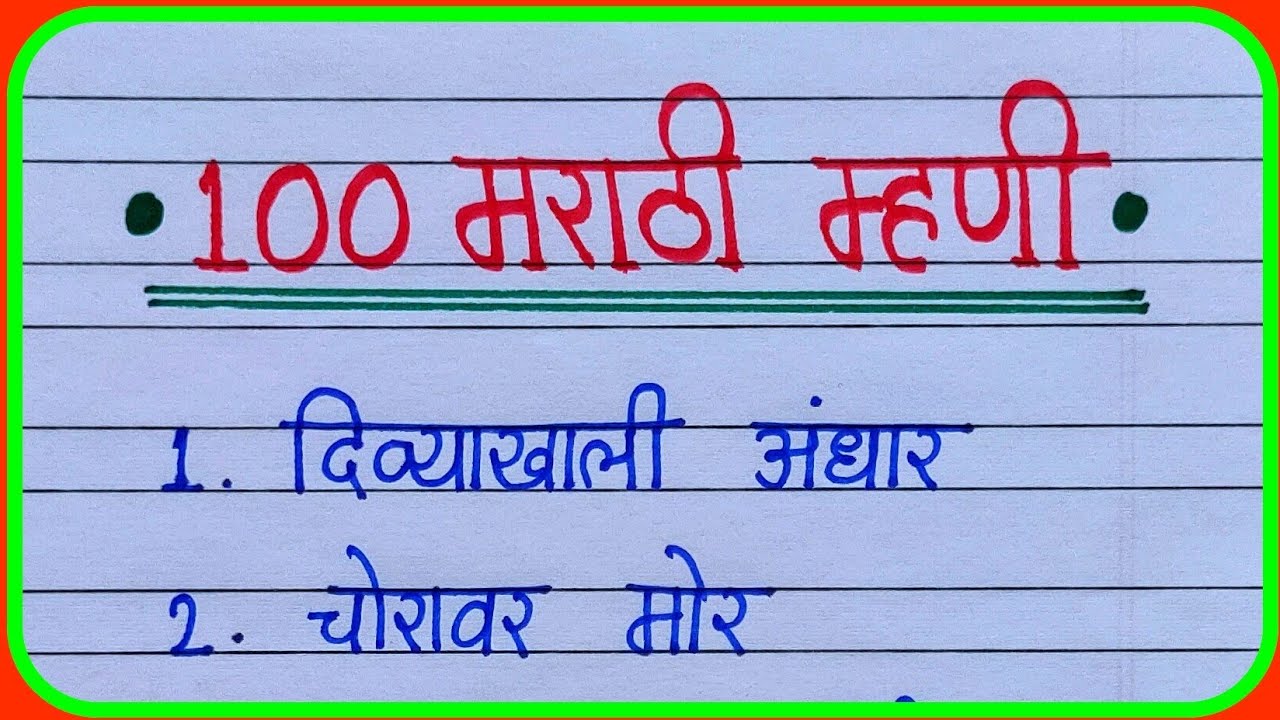 100 मराठी म्हणी
1. दिव्याखाली अंधार
2. चोरावर मोर